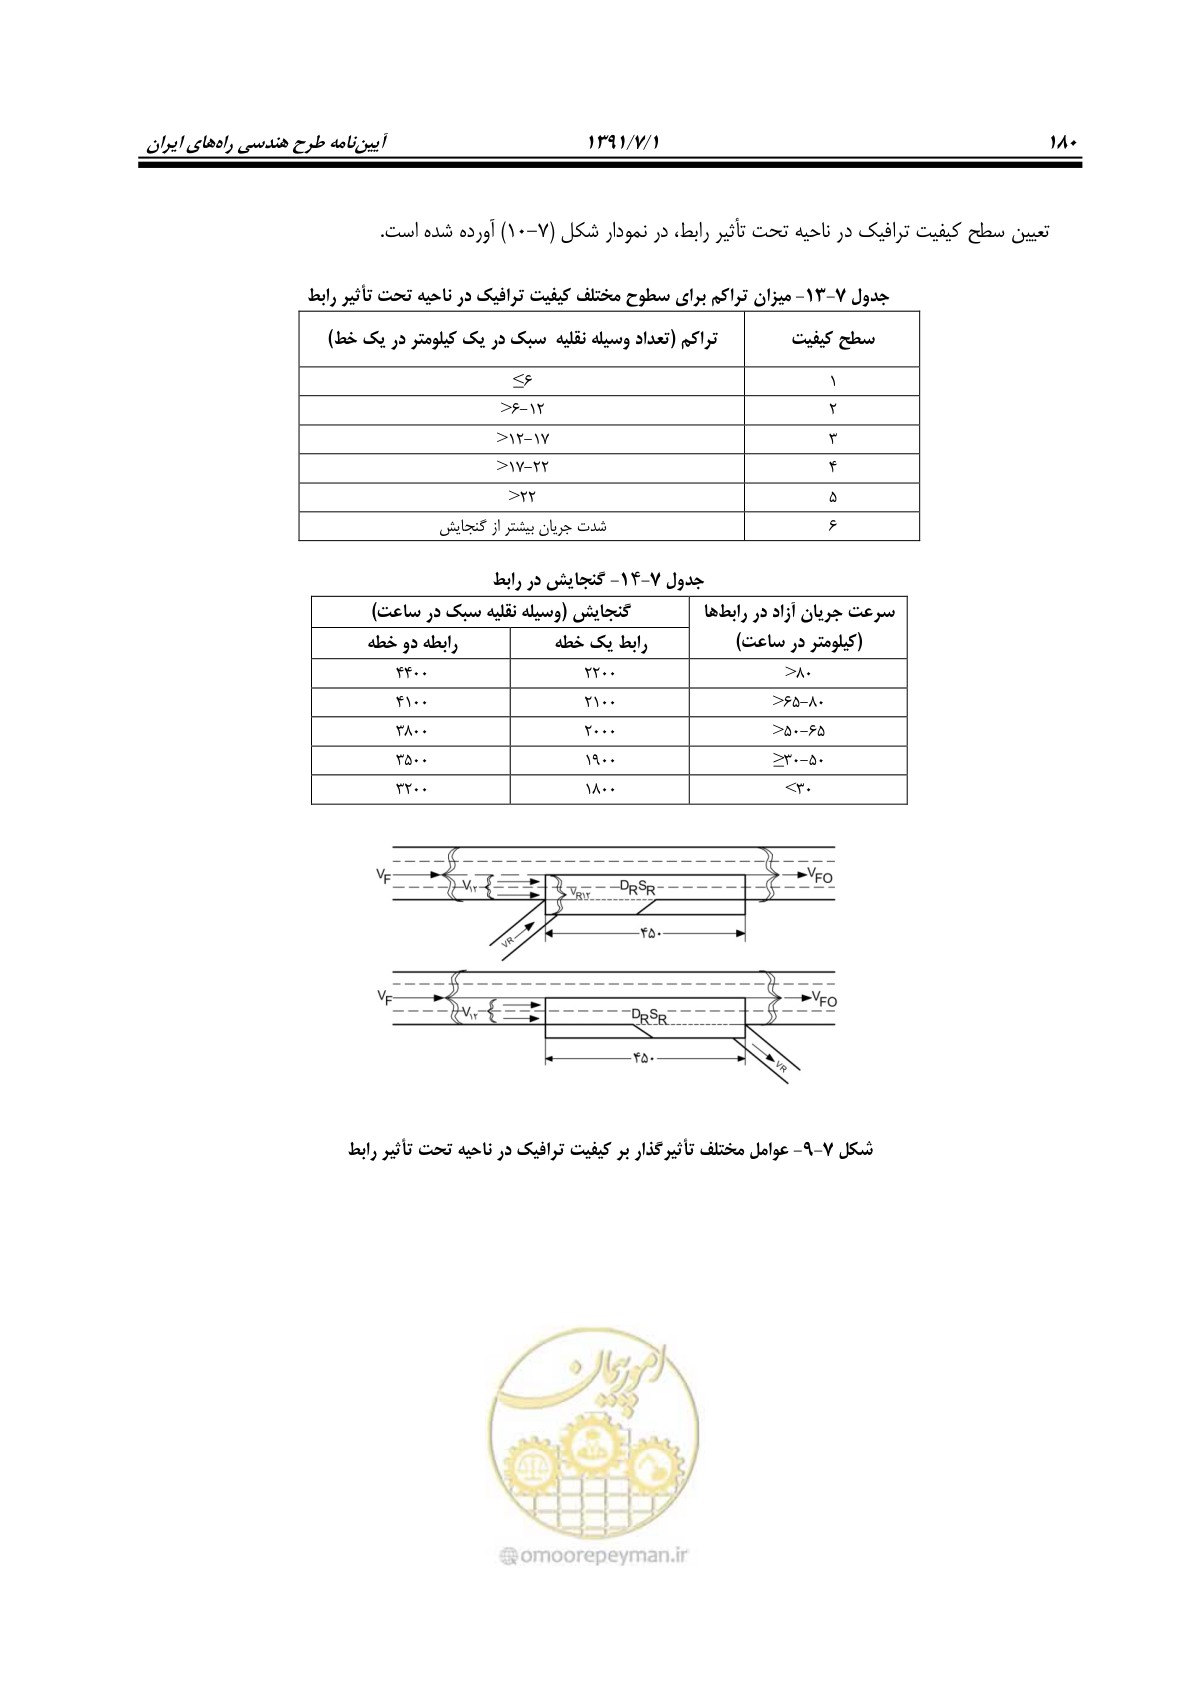 ۱۸۰ ۱۳۹۱/۷/۱ آیین‌نامه طرح هندسی راه‌های ایران
تعیین سطح کیفیت ترافیک در ناحیه تحت تأثیر رابط، در نمودار شکل (۷-۱۰) آورده شده است.
جدول ۷-۱۳- میزان تراکم برای سطوح مختلف کیفیت ترافیک در ناحیه تحت تأثیر رابط
سطح کیفیت تراکم (تعداد وسیله نقلیه سبک در یک کیلومتر در یک خط)
۱ ≤۶
۲ >۶-۱۲
۳ >۱۲-۱۷
۴ >۱۷-۲۲
۵ >۲۲
۶ شدت جریان بیشتر از گنجایش
جدول ۷-۱۴- گنجایش در رابط
سرعت جریان آزاد در رابط‌ها گنجایش (وسیله نقلیه سبک در ساعت)
(کیلومتر در ساعت) رابط یک خطه رابطه دو خطه
>۸۰ ۲۲۰۰ ۴۴۰۰
>۶۵-۸۰ ۲۱۰۰ ۴۱۰۰
>۵۰-۶۵ ۲۰۰۰ ۳۸۰۰
≥۳۰-۵۰ ۱۹۰۰ ۳۵۰۰
<۳۰ ۱۸۰۰ ۳۲۰۰
VF V۱۲ VR۱۲ DRSR VFO
VR ۴۵۰
VF V۱۲ DRSR VFO
۴۵۰ VR
شکل ۷-۹- عوامل مختلف تأثیرگذار بر کیفیت ترافیک در ناحیه تحت تأثیر رابط
امور پیمان
@omoorepeyman.ir